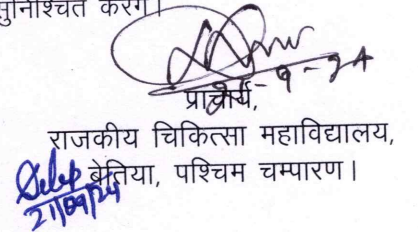 सुनिश्चित करेंगे।
प्राचार्य,
राजकीय चिकित्सा महाविद्यालय,
बेतिया, पश्चिम चम्पारण।
21/09/24